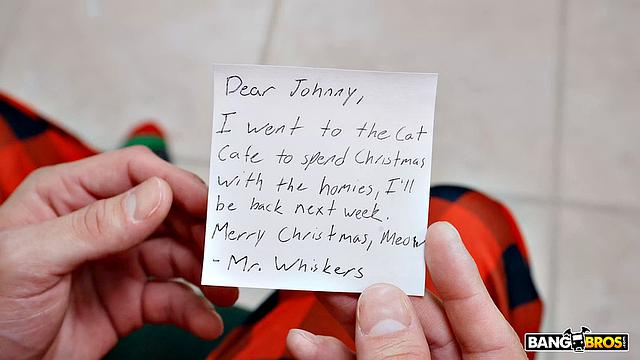 Dear Johnny,
I went to the Cat
Cafe to spend Christmas
with the homies, I'll
be back next week.
Merry Christmas, Meow
- Mr. Whiskers
BANG BROS